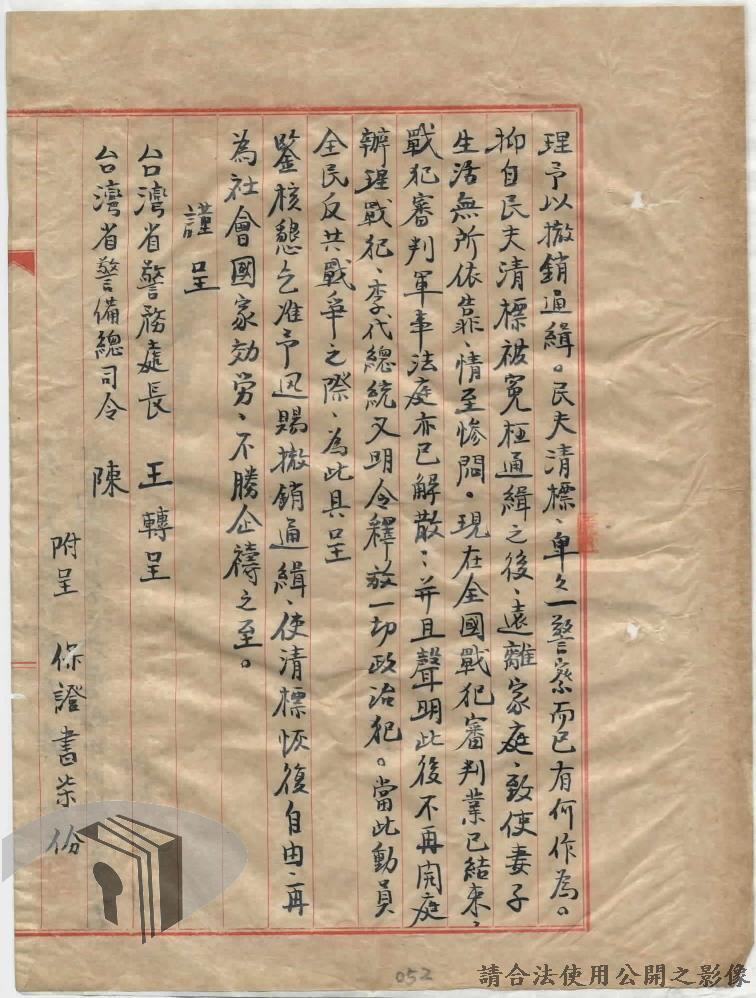 理予以撤銷通緝。民夫清標、卑々一警察而已有何作為。
抑自民夫清標被冤枉通緝之後、遠離家庭、致使妻子
生活無所依靠、情至慘悶。現在全國戰犯審判業已結束、
戰犯審判軍事法庭亦已解散：并且聲明此後不再開庭
辦理戰犯、李代總統又明令釋放一切政治犯。當此動員
全民反共戰爭之際、為此具呈
鑒核懇乞准予迅賜撤銷通緝、使清標恢復自由、再
為社會國家効労、不勝企禱之至。
謹呈
台灣省警務處長 王轉呈
台灣省警備總司令 陳
附呈 保證書柒份
052
請合法使用公開之影像